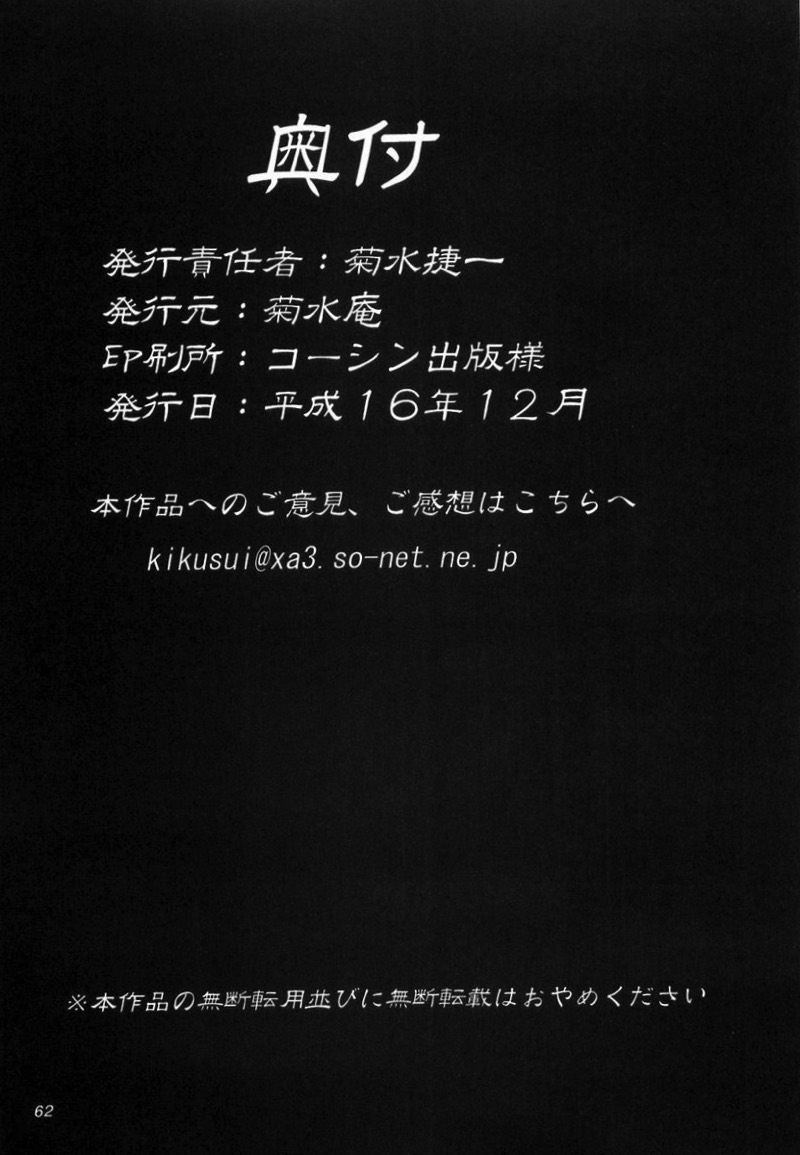 奥付
発行責任者：菊水捷一
発行元：菊水庵
印刷所：コーシン出版様
発行日：平成１６年１２月
本作品へのご意見、ご感想はこちらへ
kikusui@xa3.so-net.ne.jp
※本作品の無断転用並びに無断転載はおやめください
62